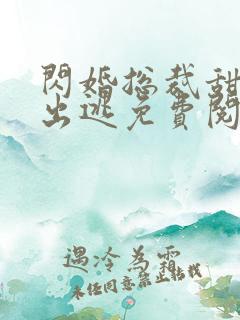 閃婚總裁甜
出逃免費閱
遇冷為霜
未經同意禁止轉載